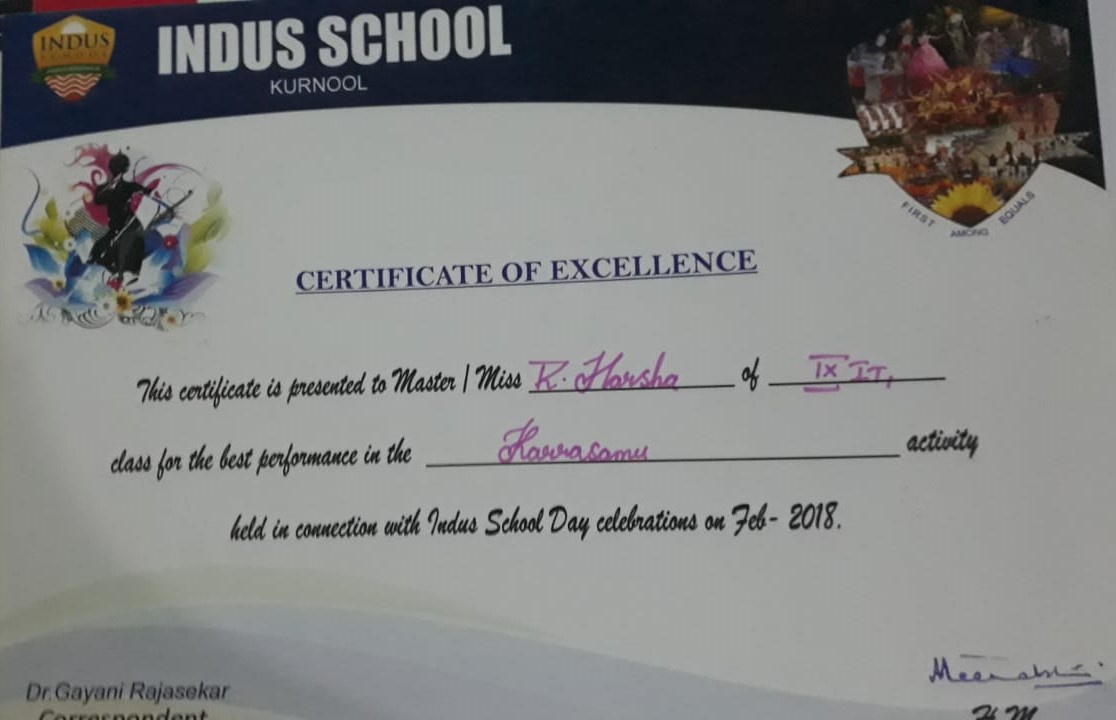 INDUS
SCHOOL
INDUS SCHOOL
KURNOOL
FIRST AMONG EQUALS
CERTIFICATE OF EXCELLENCE
This certificate is presented to Master / Miss K. Harsha of IX IT,
class for the best performance in the Karrasamu activity
held in connection with Indus School Day celebrations on Feb- 2018.
Dr.Gayani Rajasekar
Correspondent
H.M